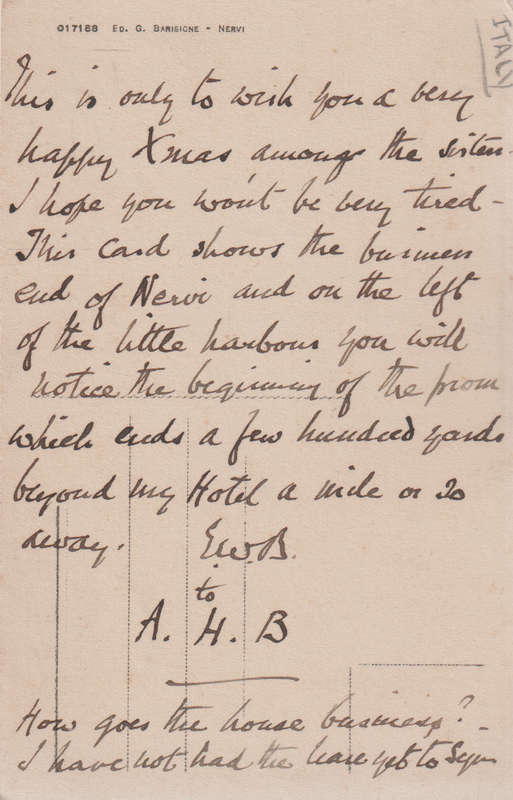 017188 ED. G. BARISIONE - NERVI
ITALY
This is only to wish you a very
happy Xmas amongs the sisters.
I hope you won't be very tired -
This card shows the business
end of Nervi and on the left
of the little harbour you will
notice the beginning of the prom
which ends a few hundred yards
beyond my Hotel a mile or so
away. E.W.B.
to
A. H. B
How goes the house business? -
I have not had the lease yet to sign